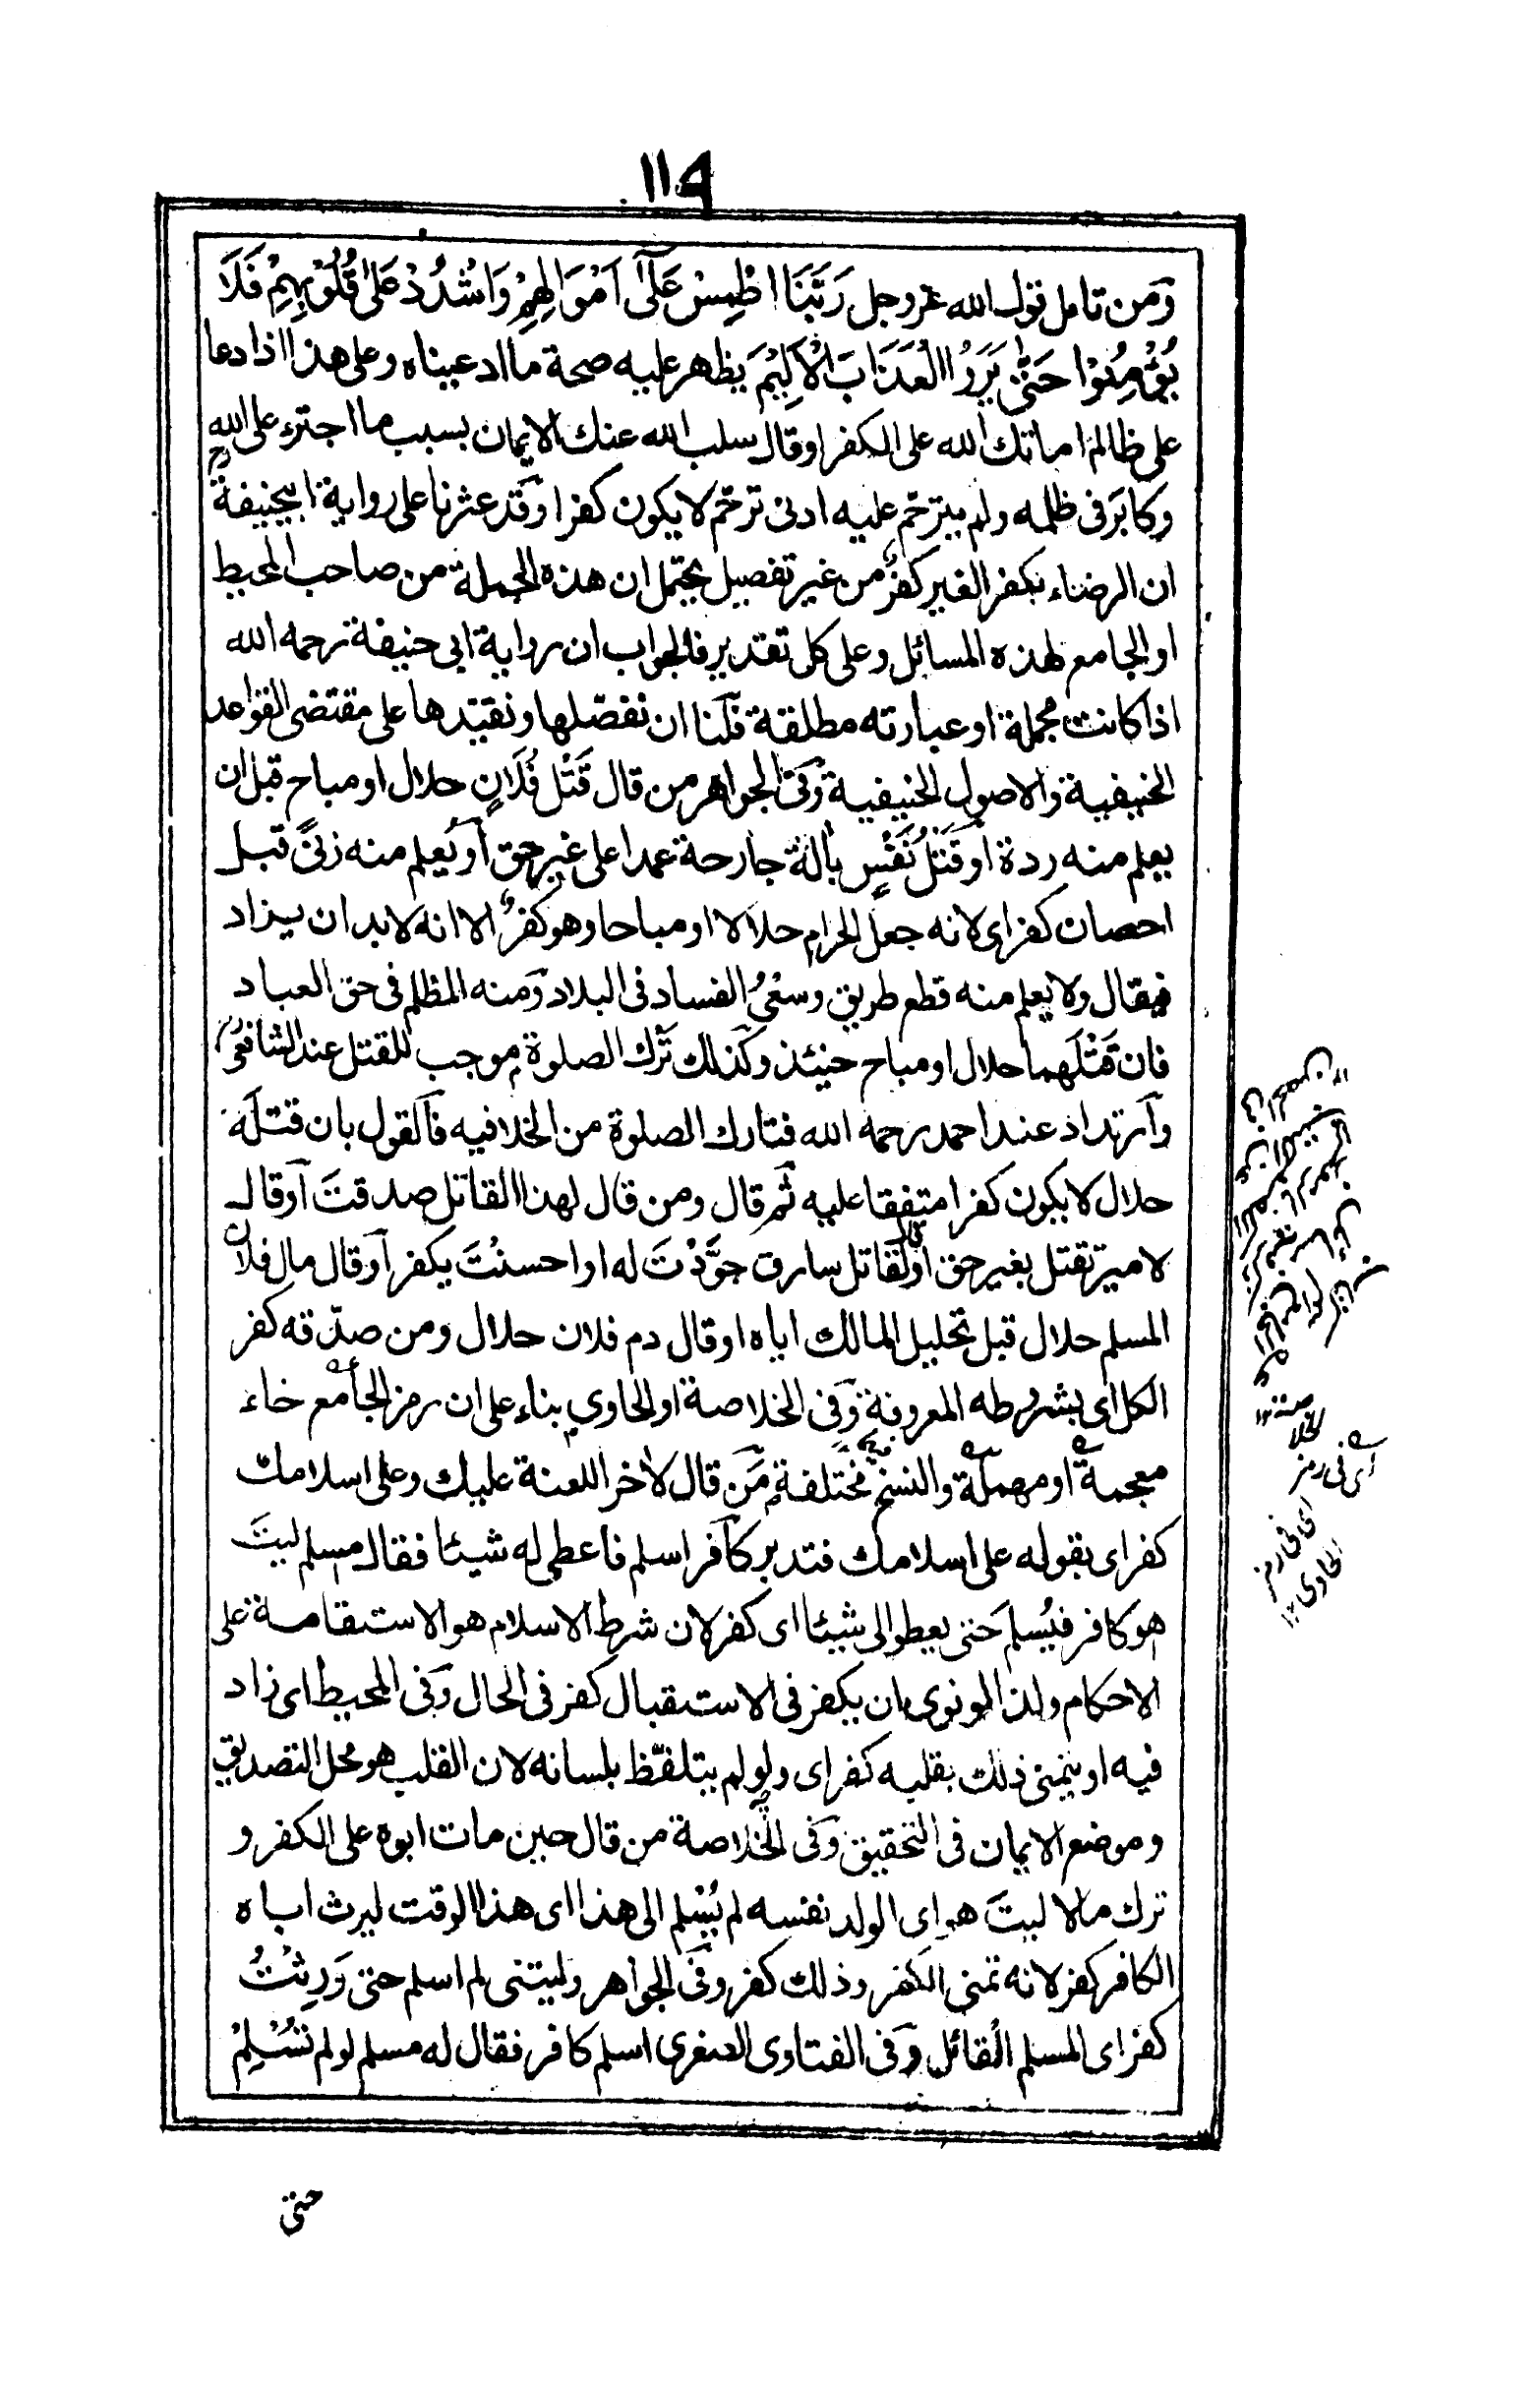 ١١٩
ومن تامل قول الله عز وجل رَبَّنَا اطْمِسْ عَلٰٓى اَمْوَالِهِمْ وَاشْدُدْ عَلٰى قُلُوْبِهِمْ فَلَا
يُؤْمِنُوْا حَتّٰى يَرَوُا الْعَذَابَ الْاَلِيْمَ يظهر عليه صحة ما ادعيناه وعلى هذا اذا دعا
على ظالم اماتك الله على الكفر او قال سلب الله عنك الايمان بسبب ما اجترء على الله
وكابر فى ظلمه ولم يترحّم عليه ادنى ترحّم لا يكون كفرا وقد عثرنا على رواية ابيحنيفة رح
ان الرضاء بكفر الغير كفرٌ من غير تفصيل يحتمل ان هذه الجملة من صاحب المحيط
او الجامع لهذه المسائل وعلى كل تقدير فالجواب ان رواية ابي حنيفة رحمه الله
اذا كانت مجملة او عبارته مطلقة فلنا ان نفصّلها ونقيّدها على مقتضى القواعد
الحنيفية والاصول الحنيفية وفى الجواهر من قال قَتْل فُلَانٍ حلال او مباح قبل ان
يعلم منه ردة او قَتْلُ نَفْسٍ بآلة جارحة عمدا على غير حق او يعلم منه زنًى قبل
احصان كفر اى لانه جعل الحرام حلالا او مباحا وهو كفرٌ الا انه لا بد ان يزاد
فيقال ولا يعلم منه قطع طريق وسعْىُ الفساد فى البلاد ومنه المظلم فى حق العباد
فان قَتْلَهما حلال او مباح حينئذ وكذلك ترك الصلوة موجب للقتل عند الشافعى رح
وارتداد عند احمد رحمه الله فتارك الصلوة من الخلافيه فالقول بان قتلَه
حلال لا يكون كفرا متفقا عليه ثم قال ومن قال لهذا القاتل صدقتَ او قال
لامير تقتل بغير حق او قال لقاتل سارق جوّدْتَ له او احسنْتَ يكفر او قال مال فلان
المسلم حلال قبل تحليل المالك اياه او قال دم فلان حلال ومن صدّقه كفر
الكل اى بشروطه المعروفة وفى الخلاصة او الحاوي بناء على ان رمز الجامع خاء
معجمة او مهملة والنسخ مختلفة من قال لاخر اللعنة عليك وعلى اسلامك
كفر اى بقوله على اسلامك فتدبر كافر اسلم فاعطى له شيئا فقال مسلم ليتَ
هو كافر فيُسلم حتى يعطوا لى شيئا اى كفر لان شرط الاسلام هو الاستقامة على
الاحكام ولذا لو نوى بان يكفر فى الاستقبال كفر فى الحال وفى المحيط اى زاد
فيه او يتمنى ذلك بقلبه كفر اى ولو لم يتلفّظ بلسانه لان القلب هو محل التصديق
وموضع الايمان فى التحقيق وفى الخلاصة من قال حين مات ابوه على الكفر و
ترك مالا ليتَ هو اى الولد نفسه لم يُسْلم الى هذا اى هذا الوقت ليرث اباه
الكافر كفر لانه تمنى الكفر وذلك كفر وفى الجواهر وليتنى لم اسلم حتى وَرِثْتُ
كفر اى المسلم القائل وفى الفتاوى الصغرى اسلم كافر فقال له مسلم لو لم تُسْلِمْ
حتى
اى فى رمز
الخلاصة ١٢
اى فى رمز
الحاوى ١٢